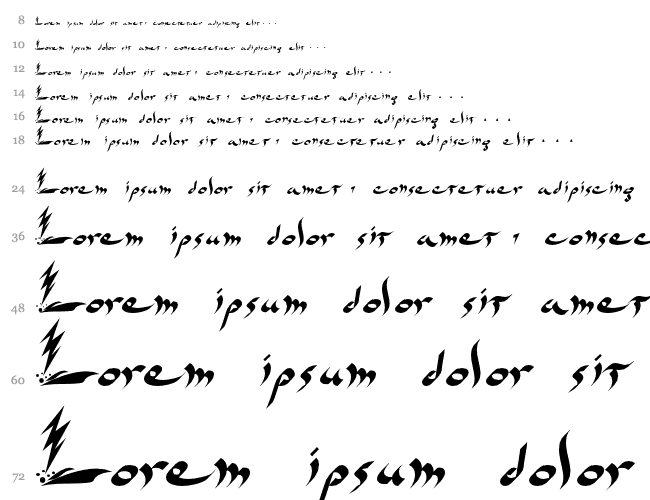 8 Lorem ipsum dolor sit amet, consectetuer adipiscing elit...
10 Lorem ipsum dolor sit amet, consectetuer adipiscing elit...
12 Lorem ipsum dolor sit amet, consectetuer adipiscing elit...
14 Lorem ipsum dolor sit amet, consectetuer adipiscing elit...
16 Lorem ipsum dolor sit amet, consectetuer adipiscing elit...
18 Lorem ipsum dolor sit amet, consectetuer adipiscing elit...
24 Lorem ipsum dolor sit amet, consectetuer adipiscing
36 Lorem ipsum dolor sit amet, consec
48 Lorem ipsum dolor sit amet
60 Lorem ipsum dolor sit
72 Lorem ipsum dolor